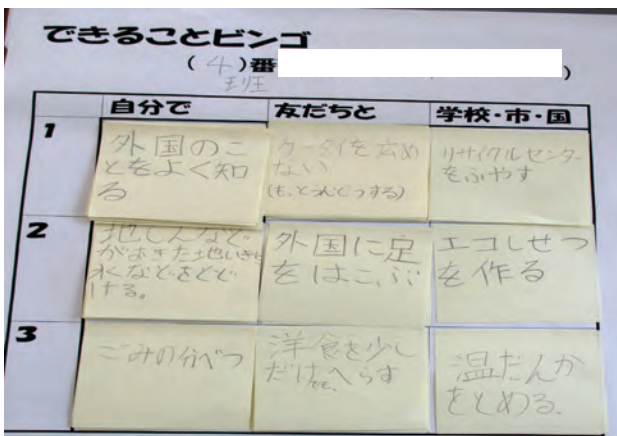 できることビンゴ
(4)番
班
)
自分で 友だちと 学校・市・国
1
外国のこ
とをよく知
る
ケータイを広め
ない
リサイクルセンター
をふやす
2
地しんなど
がおきた地いきに
水などをとど
ける。
外国に足
をはこぶ
エコしせつ
を作る
3
ごみの分べつ
洋食を少し
だけへらす
温だんか
をとめる。